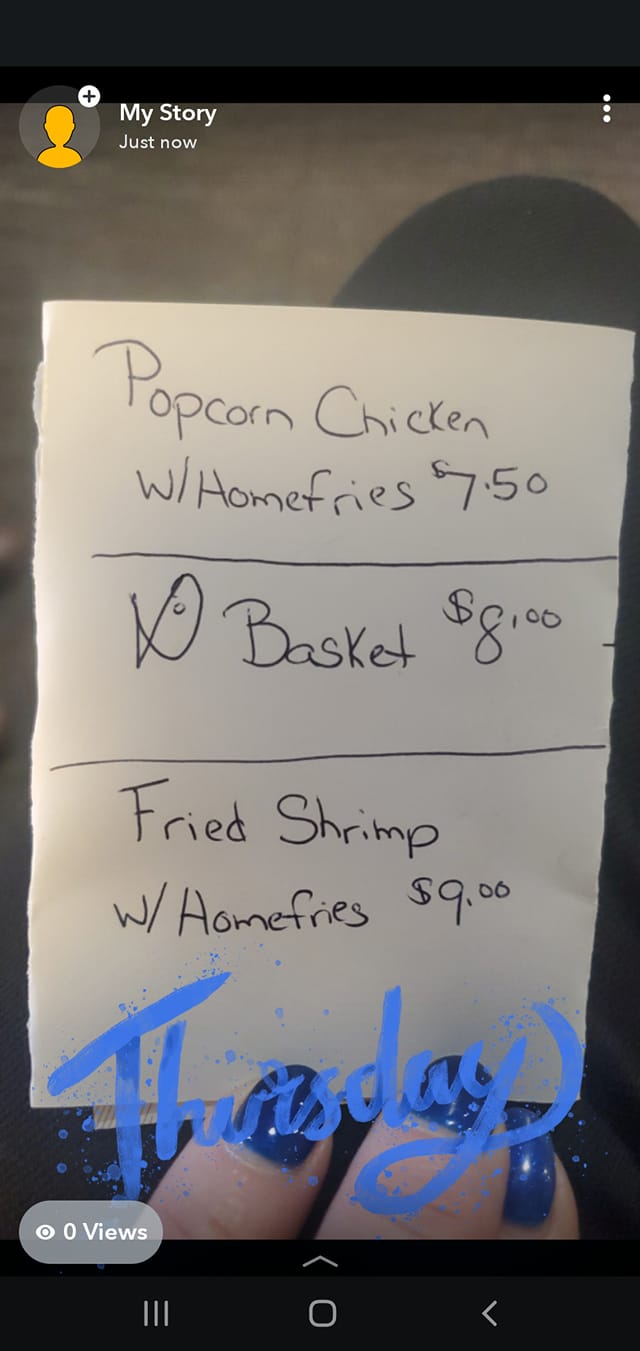 My Story
Just now
Popcorn Chicken
W/Homefries $7.50
Basket $8.00
Fried Shrimp
W/Homefries $9.00
Thursday
0 Views